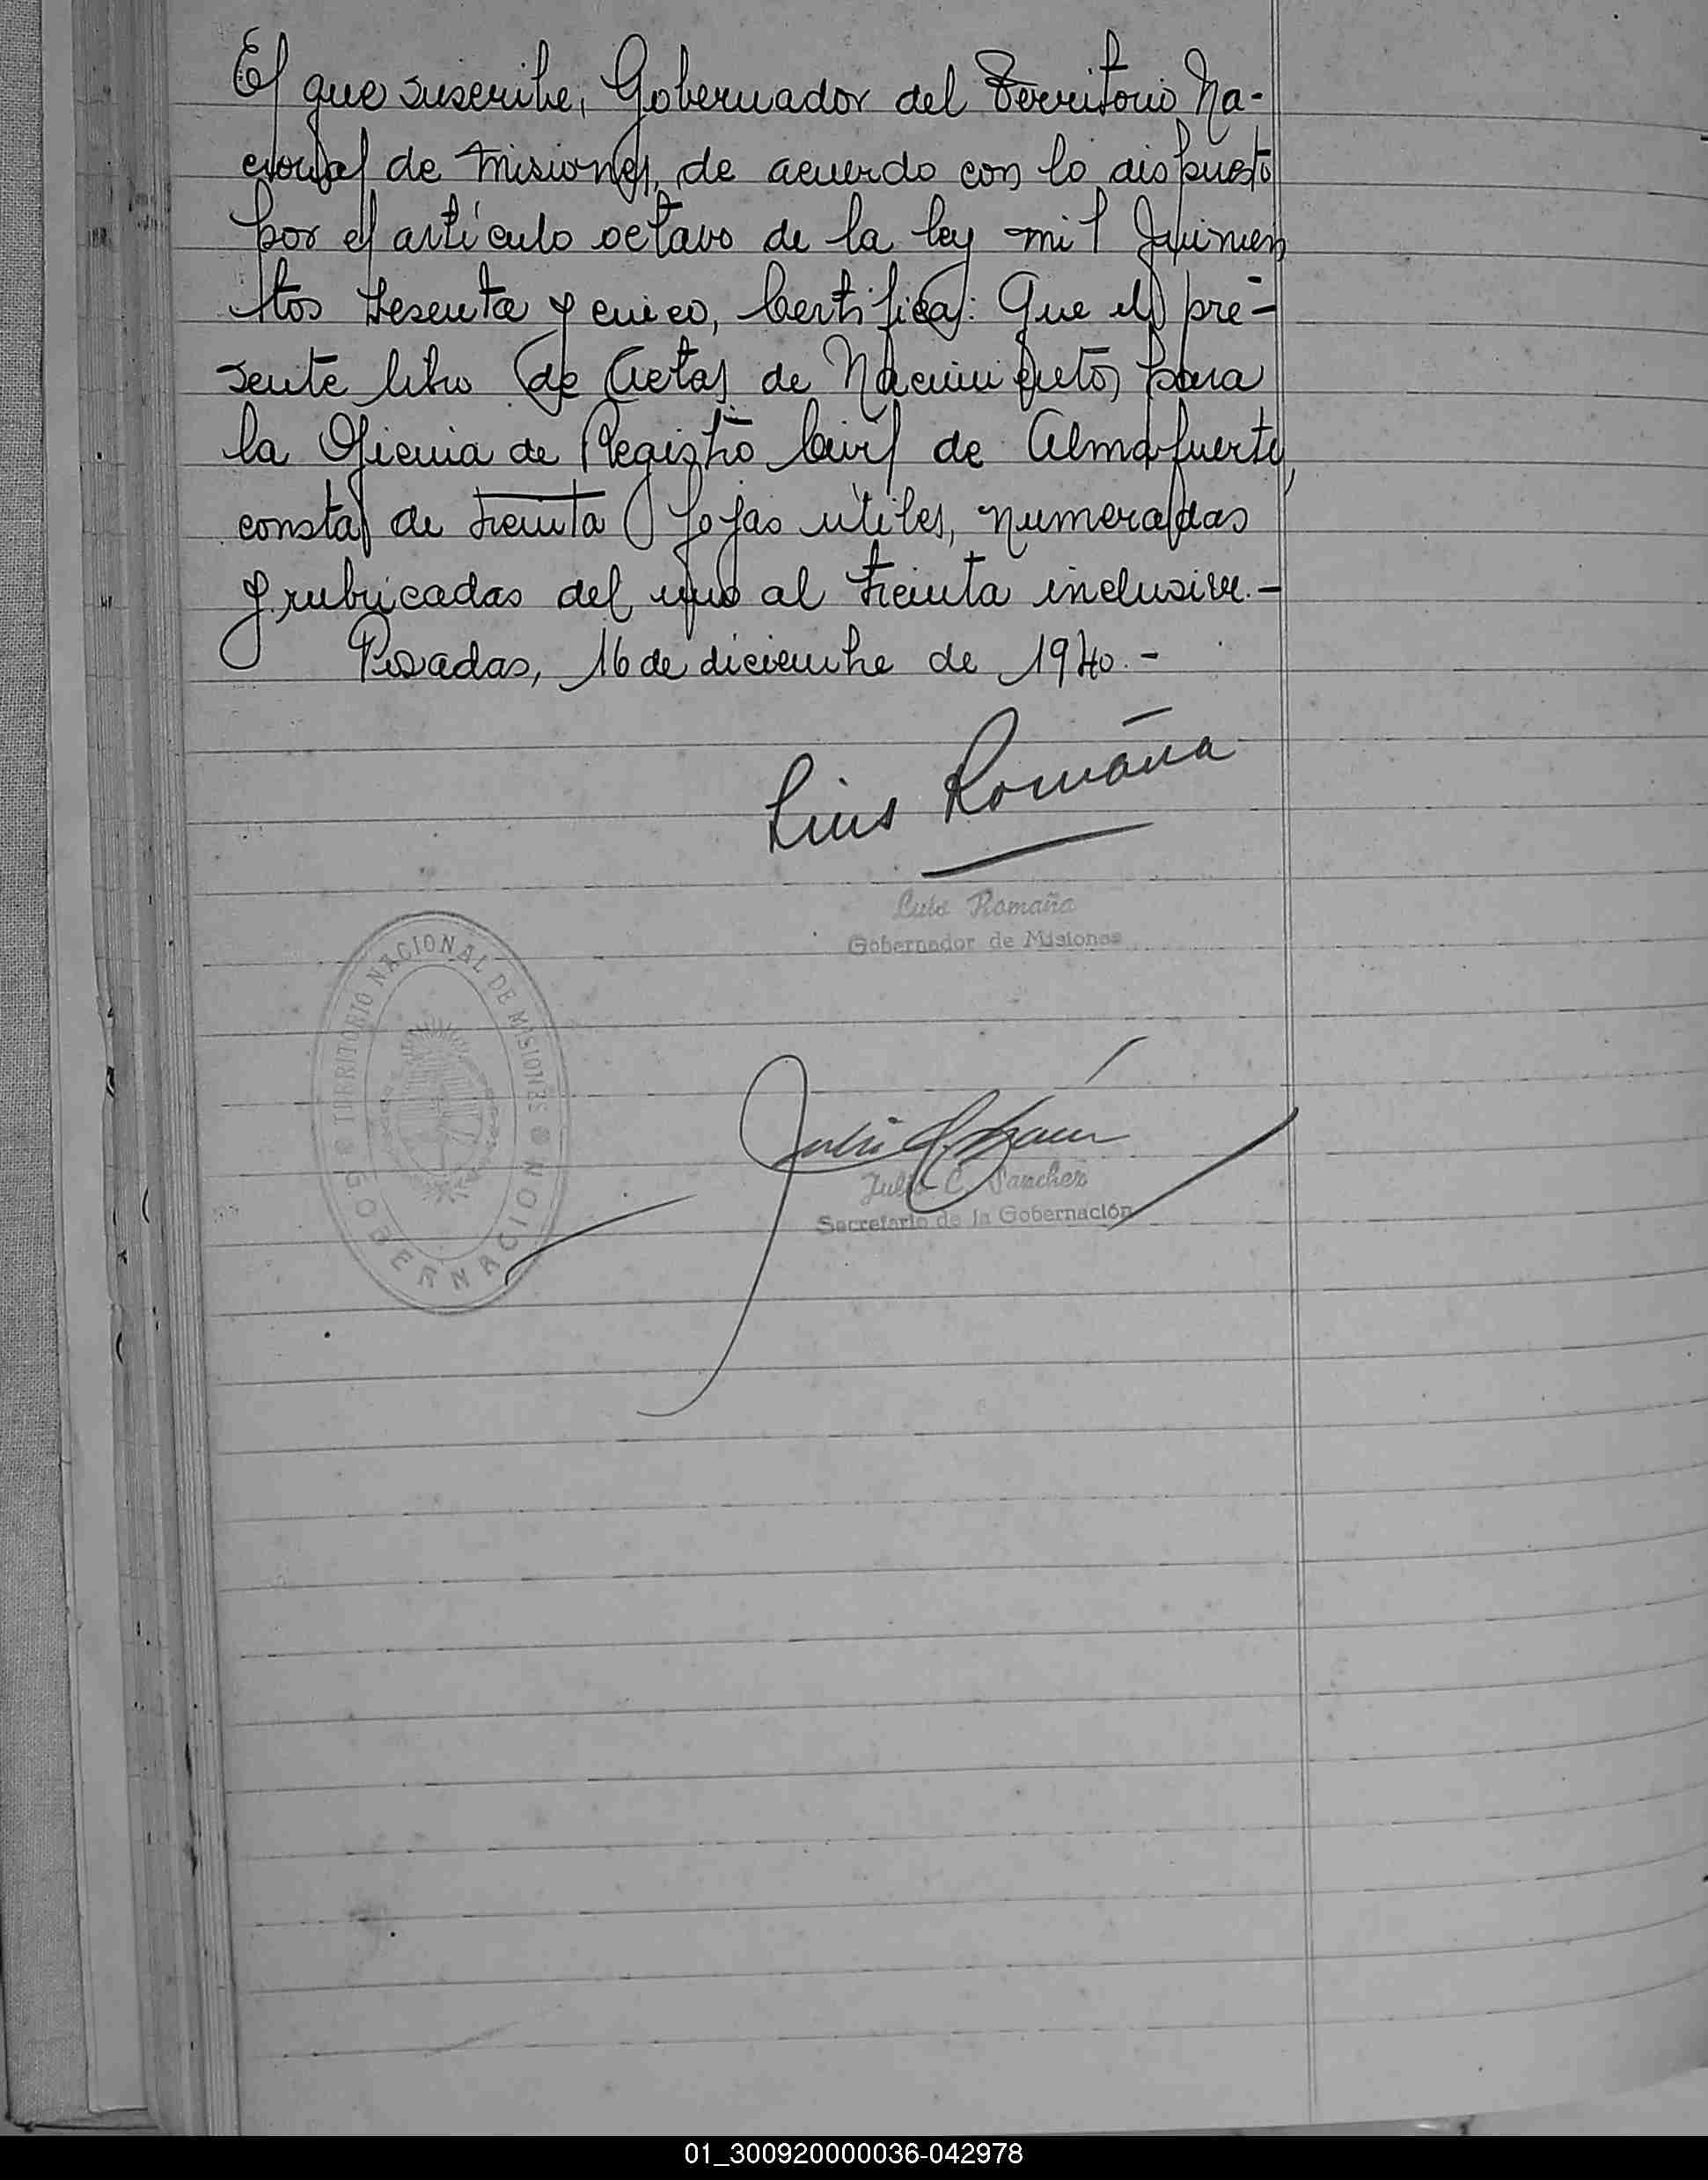 El que suscribe, Gobernador del Territorio Na-
cional de Misiones, de acuerdo con lo dispuesto
por el artículo octavo de la ley mil quinien
tos sesenta y cinco, Certifica: Que el pre-
sente libro de Actas de Nacimientos para
la Oficina de Registro Civil de Almafuerte,
consta de treinta fojas utiles, numeradas
y rubricadas del uno al treinta inclusive.-
Posadas, 16 de diciembre de 1940.-
Luis Romaña
Luis Romaña
Gobernador de Misiones
TERRITORIO NACIONAL DE MISIONES
GOBERNACION
Julio C. Sanchez
Secretario de la Gobernación
01_300920000036-042978